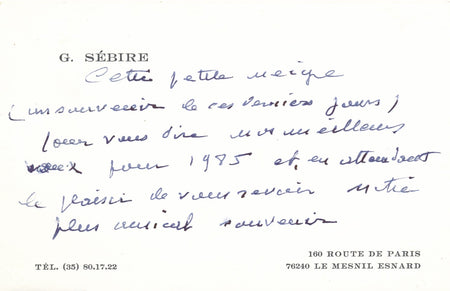 G. SÉBIRE
Cette petite neige
(un souvenir de ces derniers jours)
pour vous dire nos meilleurs
vœux pour 1985 et en attendant
le plaisir de vous revoir notre
plus amical souvenir
160 ROUTE DE PARIS
TÉL. (35) 80.17.22
76240 LE MESNIL ESNARD